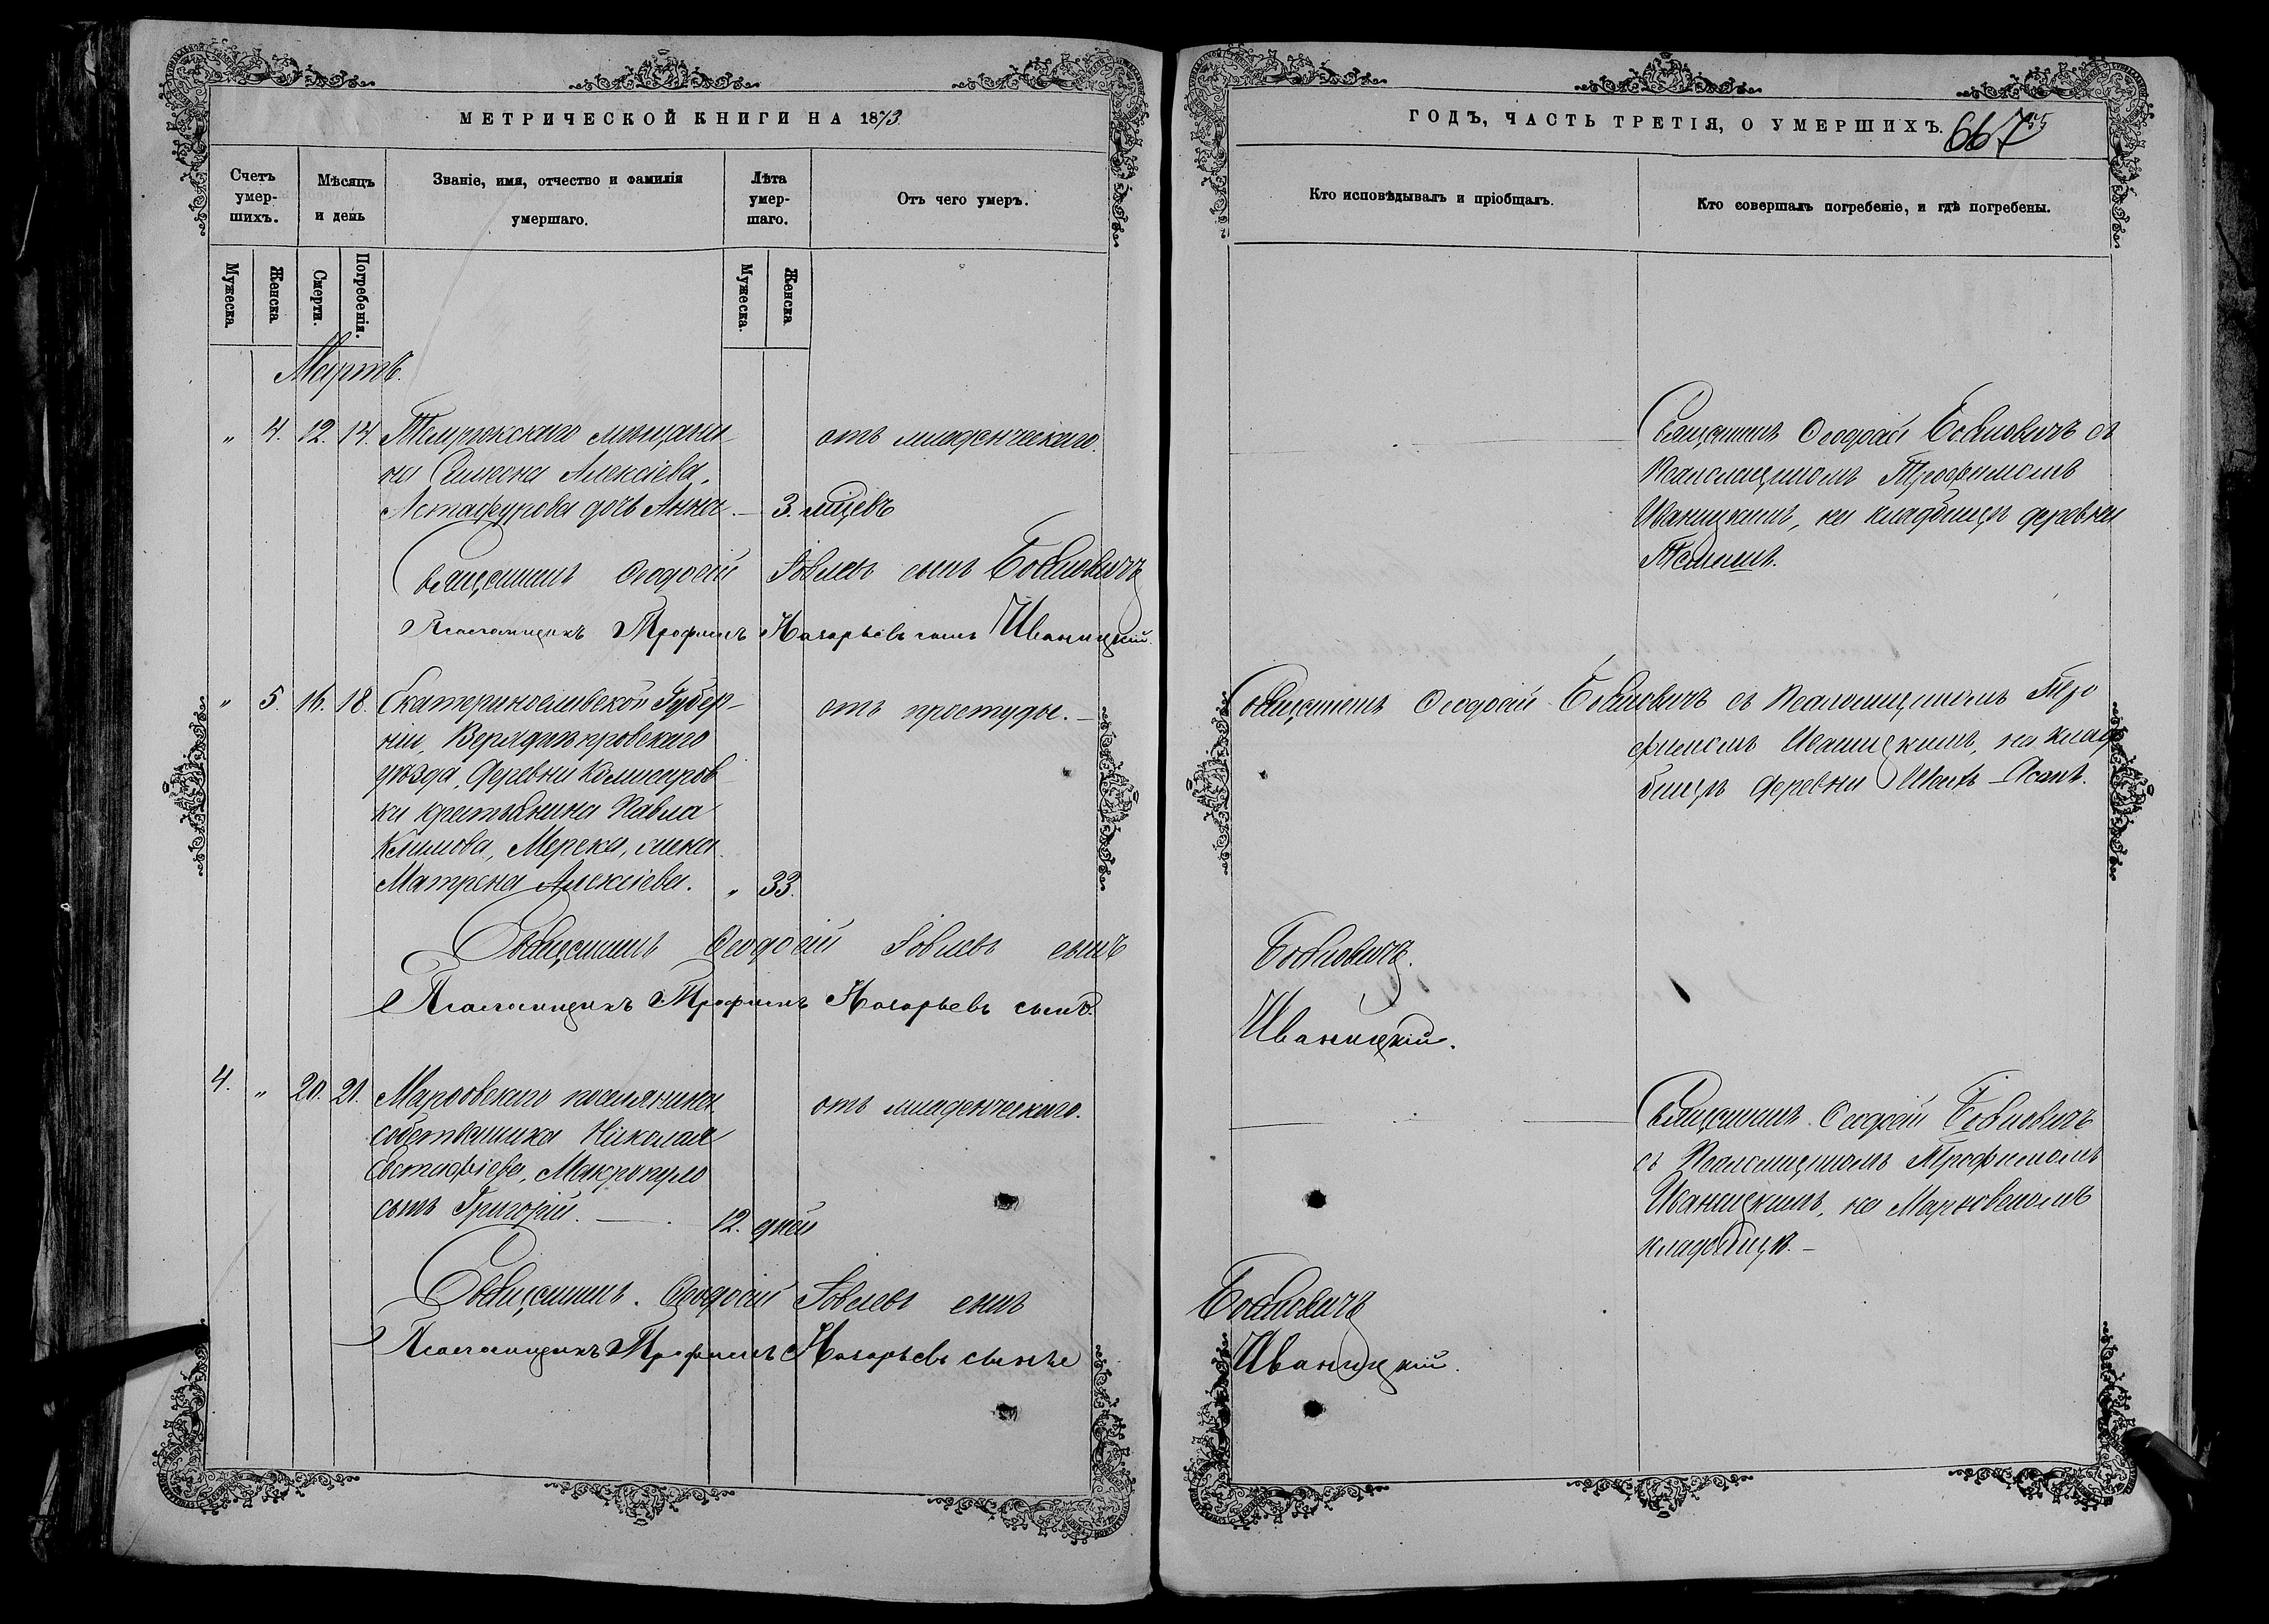 МЕТРИЧЕСКОЙ КНИГИ НА 1873.
Счетъ умер-шихъ.
Мѣсяцъ и день
Званіе, имя, отчество и фамилія умершаго.
Лѣта умер-шаго.
Отъ чего умеръ.
Мужеска.
Женска.
Смерти.
Погребенія.
Мужеска.
Женска
Мартъ.
" 4. 12. 14. Темрюкскаго мѣщани-
на Симеона Алексіева,
Астафурова дочь Анна. — 3. мѣсцевъ
отъ младенческаго.
Священникъ Ѳеодосій Іовлевъ сынъ
Псаломщикъ Трофимъ Назарьевъ сынъ Иваницкій.
" 5. 16. 18. Екатеринославской Губер-
ніи, Верхднѣпровскаго
уѣзда, деревни Комисаров-
ки крестьянина Павла
Климова, Мерека, жена
Матрена Алексіева. " 33.
отъ простуды. —
Священникъ Ѳеодосій Іовлевъ сынъ
Псаломщикъ Трофимъ Назарьевъ сынъ.
4. " 20. 21. Марфовскаго поселянина
собственника Николая
Евстафіева, Макропуло
сынъ Григорій. — 12. дней
отъ младенческаго.
Священникъ Ѳеодосій Іовлевъ сынъ
Псаломщикъ Трофимъ Назарьевъ сынъ
ГОДЪ, ЧАСТЬ ТРЕТІЯ, О УМЕРШИХЪ.
667
Кто исповѣдывалъ и пріобщалъ.
Кто совершалъ погребеніе, и гдѣ погребены.
Священникъ Ѳеодосій съ
Псаломщикомъ Трофимомъ
Иваницкимъ, на кладбищѣ деревни
Священникъ Ѳеодосій съ Псаломщикомъ Тро
фимомъ Иваницкимъ, на клад
бищѣ деревни
Иваницкій.
Священникъ Ѳеодосій
съ Псаломщикомъ Трофимомъ
Иваницкимъ, на Марфовскомъ
кладбищѣ. —
Иваницкій.